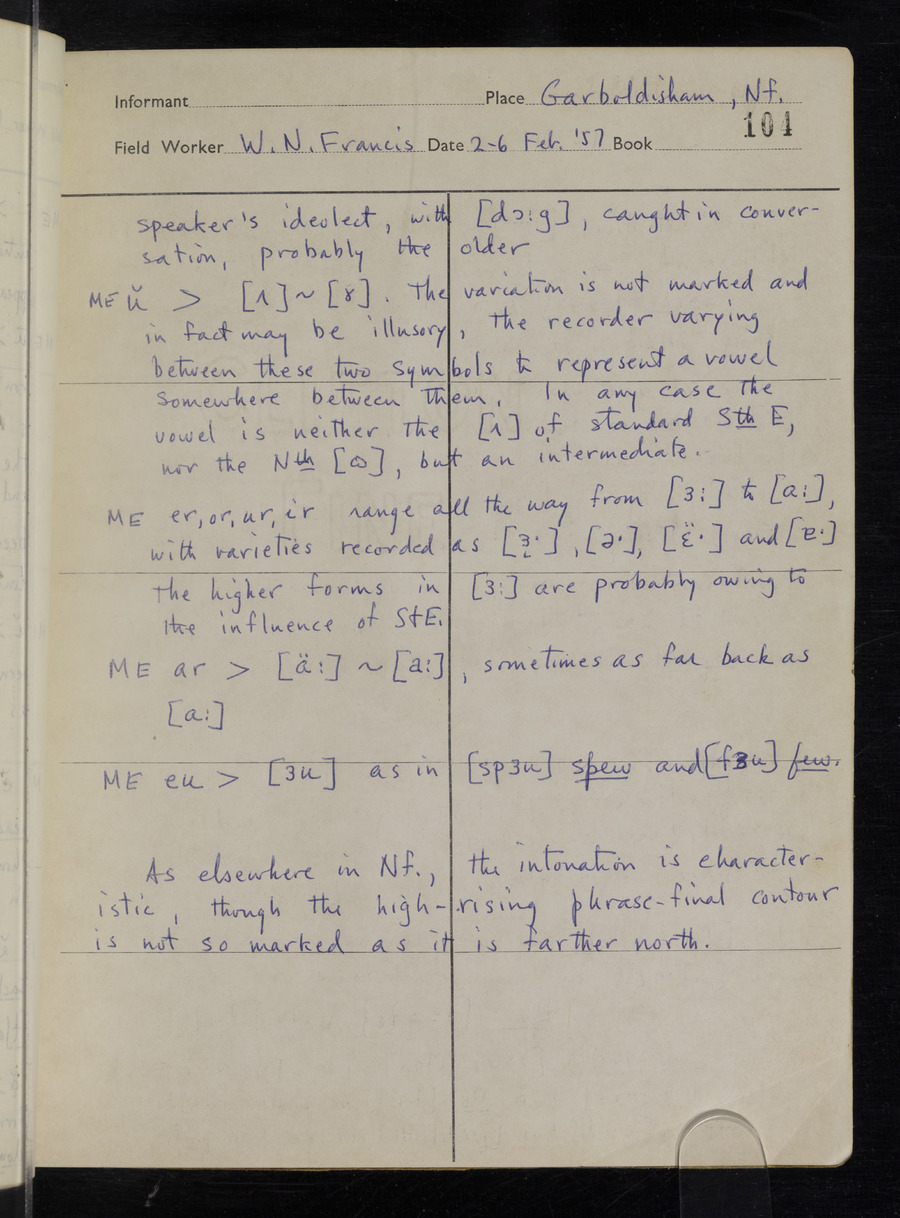 Informant Place Garboldisham, Nf.
104
Field Worker W. N. Francis Date 2-6 Feb. '57 Book
speaker's ideolect, with [dɔ:g], caught in conver-
sation, probably the older
ME ŭ > [ʌ] ~ [ɤ̈]. The variation is not marked and
in fact may be illusory, the recorder varying
between these two symbols to represent a vowel
somewhere between them. In any case the
vowel is neither the [ʌ] of standard Sth E,
nor the Nth [ɷ], but an intermediate.
ME er, or, ur, ir range all the way from [ɜ:] to [a:],
with varieties recorded as [ɜ̞·], [ə·], [ɛ̈·] and [ɐ·]
The higher forms in [ɜ:] are probably owing to
the influence of StE.
ME ar > [ä:] ~ [a:], sometimes as far back as
[ɑ:]
ME eu > [ɜu] as in [spɜu] spew and [fɜu] few.
As elsewhere in Nf., the intonation is character-
istic, though the high-rising phrase-final contour
is not so marked as it is farther north.